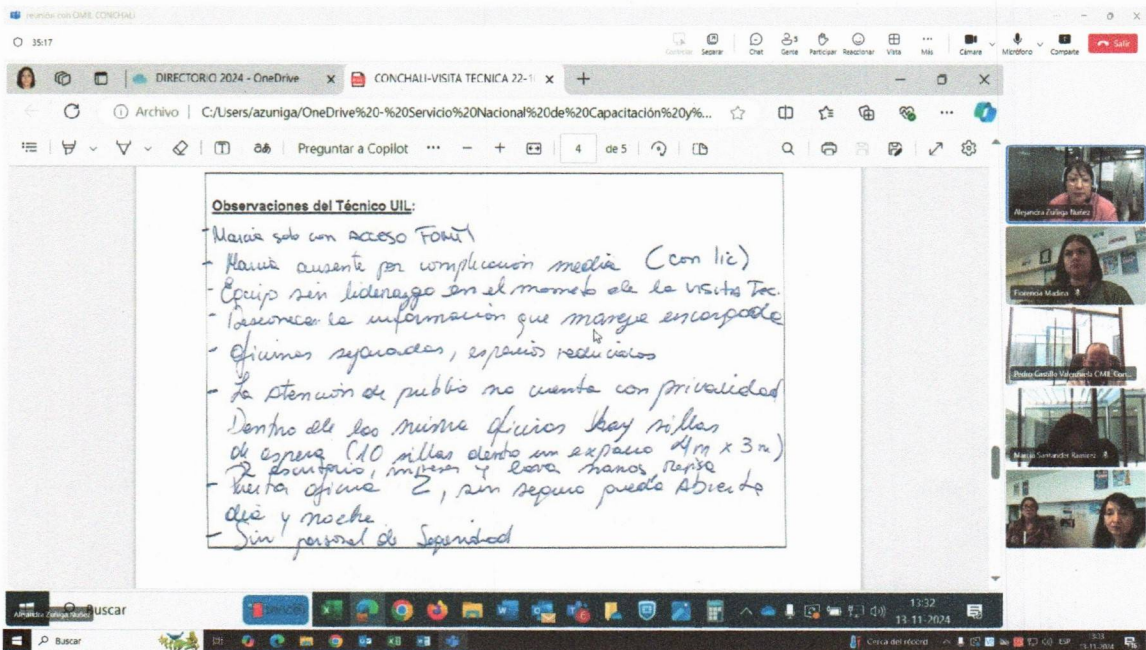 reunión con OMIL CONCHALI
35:17
Controlar Separar Chat Gente Participar Reaccionar Vista Más Cámara Micrófono Comparte Salir
3
DIRECTORIO 2024 - OneDrive
CONCHALI-VISITA TECNICA 22-1
Archivo | C:/Users/azuniga/OneDrive%20-%20Servicio%20Nacional%20de%20Capacitación%20y%...
Preguntar a Copilot
4 de 5
Observaciones del Técnico UIL:
- Marcia solo con ACCESO
- Marcia ausente por complicación media (con lic)
- Equipo sin liderazgo en el momento de la visita Tec.
- Desconoce la información que maneja encargada
- Oficinas separadas, espacios reducidos
- La atención de publio no cuenta con privacidad
Dentro de las misma oficinas hay sillas
de espera (10 sillas dento un espacio 4m x 3m)
2 escritorio, impresora y lava manos, repisa
- Puerta oficina 2, sin seguro pueda Abierta
día y noche
- Sin personal de Seguridad
Alejandra Zuñiga Nuñez
Florencia Madina
Pedro Castillo Valenzuela OMIL Con...
Marcia Santander Ramirez
Alejandra Zuñiga Nuñez
Buscar
13:32
13-11-2024
Buscar
Cerca del récord
ESP
13-11-2024